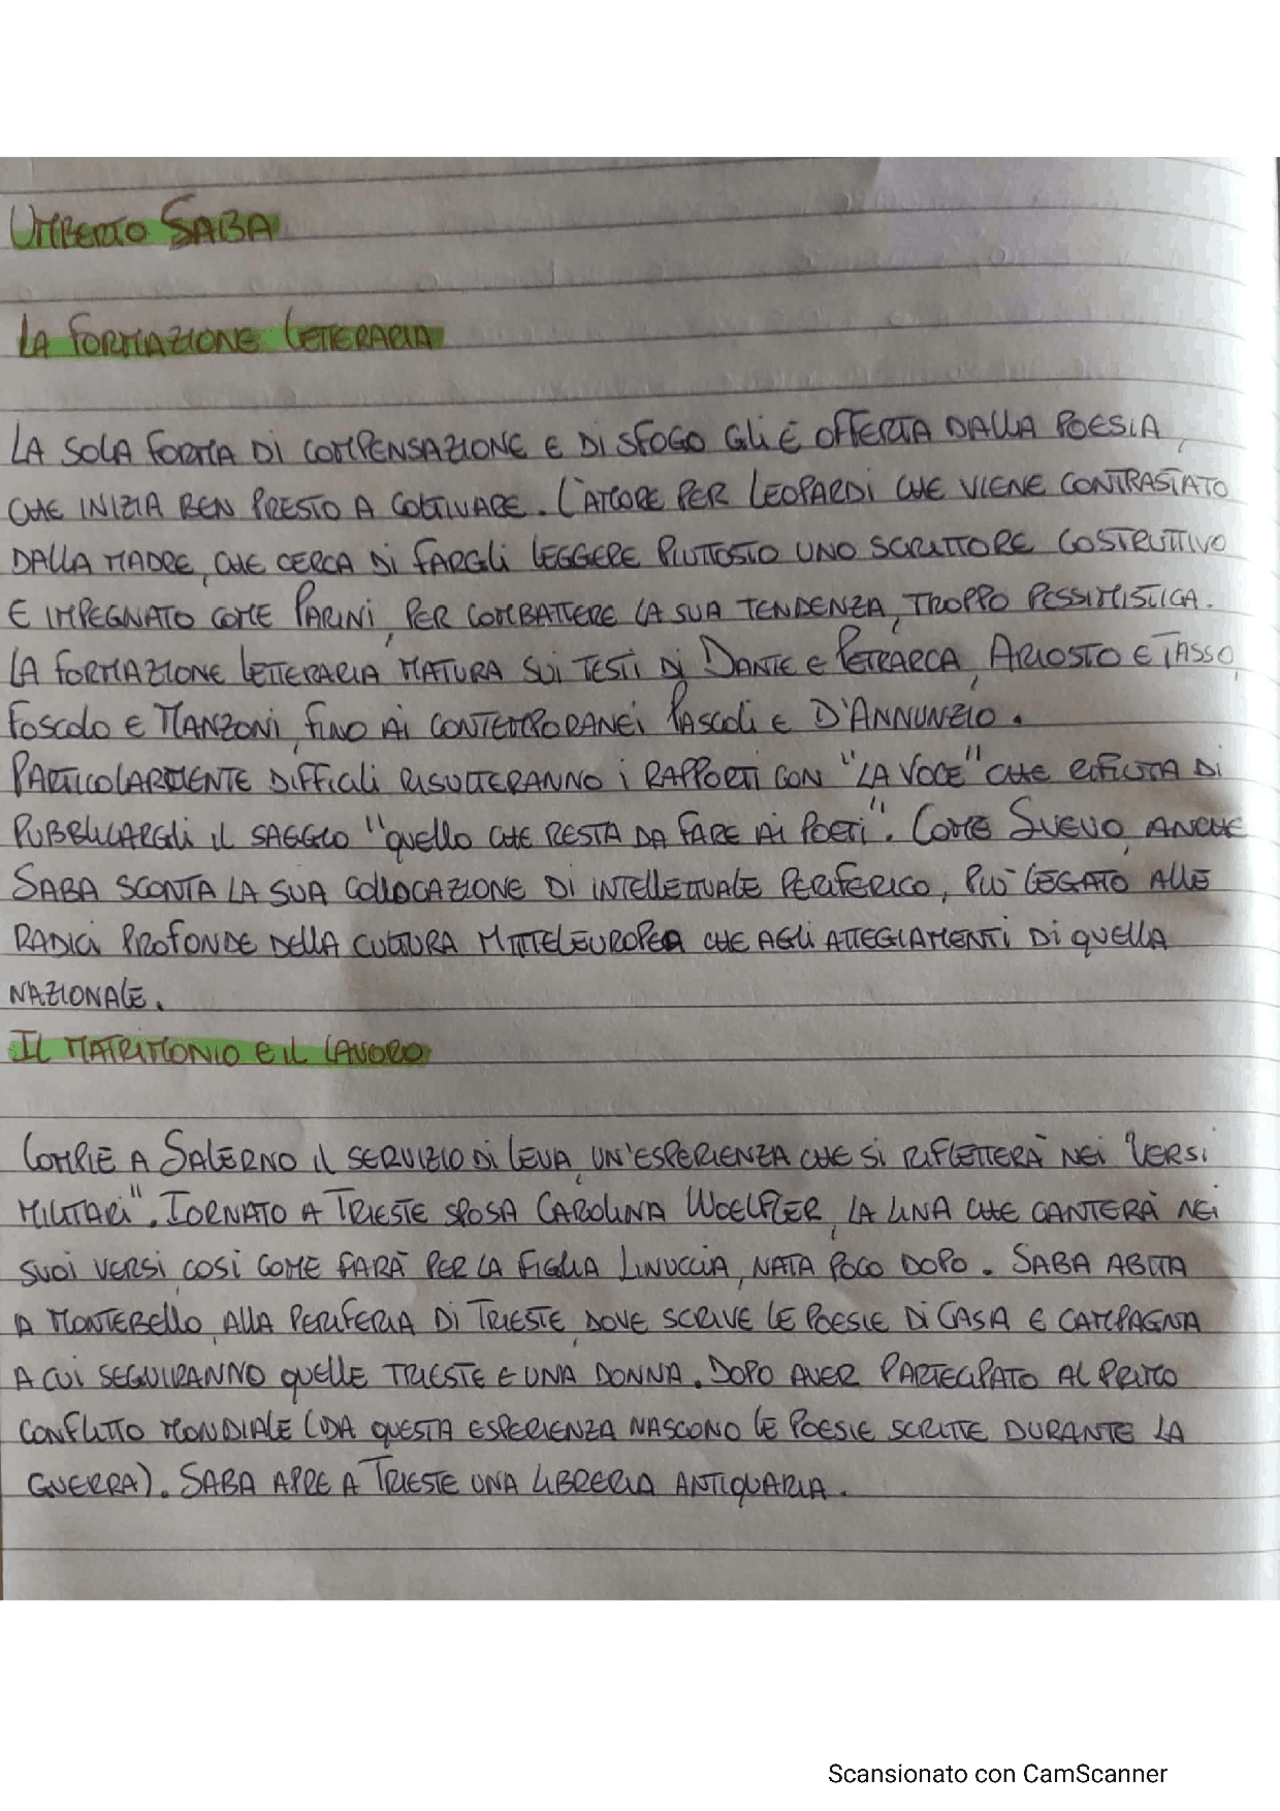 UMBERTO SABA
LA FORMAZIONE LETTERARIA
LA SOLA FORMA DI COMPENSAZIONE E DI SFOGO GLI È OFFERTA DALLA POESIA,
CHE INIZIA BEN PRESTO A COLTIVARE. L'AMORE PER LEOPARDI CHE VIENE CONTRASTATO
DALLA MADRE, CHE CERCA DI FARGLI LEGGERE PIUTTOSTO UNO SCRITTORE COSTRUTTIVO
E IMPEGNATO COME PARINI, PER COMBATTERE LA SUA TENDENZA, TROPPO PESSIMISTICA.
LA FORMAZIONE LETTERARIA MATURA SUI TESTI DI DANTE E PETRARCA, ARIOSTO E TASSO,
FOSCOLO E MANZONI, FINO AI CONTEMPORANEI PASCOLI E D'ANNUNZIO.
PARTICOLARMENTE DIFFICILI RISULTERANNO I RAPPORTI CON "LA VOCE" CHE RIFIUTA DI
PUBBLICARGLI IL SAGGIO "QUELLO CHE RESTA DA FARE AI POETI". COME SVEVO, ANCHE
SABA SCONTA LA SUA COLLOCAZIONE DI INTELLETTUALE PERIFERICO, PIÙ LEGATO ALLE
RADICI PROFONDE DELLA CULTURA MITTELEUROPEA CHE AGLI ATTEGIAMENTI DI QUELLA
NAZIONALE.
IL MATRIMONIO E IL LAVORO
COMPIE A SALERNO IL SERVIZIO DI LEVA, UN'ESPERIENZA CHE SI RIFLETTERÀ NEI "VERSI
MILITARI". TORNATO A TRIESTE SPOSA CAROLINA WOELFLER, LA LINA CHE CANTERÀ NEI
SUOI VERSI, COSÌ COME FARÀ PER LA FIGLIA LINUCCIA, NATA POCO DOPO. SABA ABITA
A MONTEBELLO, ALLA PERIFERIA DI TRIESTE, DOVE SCRIVE LE POESIE DI CASA E CAMPAGNA
A CUI SEGUIRANNO QUELLE TRIESTE E UNA DONNA. DOPO AVER PARTECIPATO AL PRIMO
CONFLITTO MONDIALE (DA QUESTA ESPERIENZA NASCONO LE POESIE SCRITTE DURANTE LA
GUERRA). SABA APRE A TRIESTE UNA LIBRERIA ANTIQUARIA.
Scansionato con CamScanner